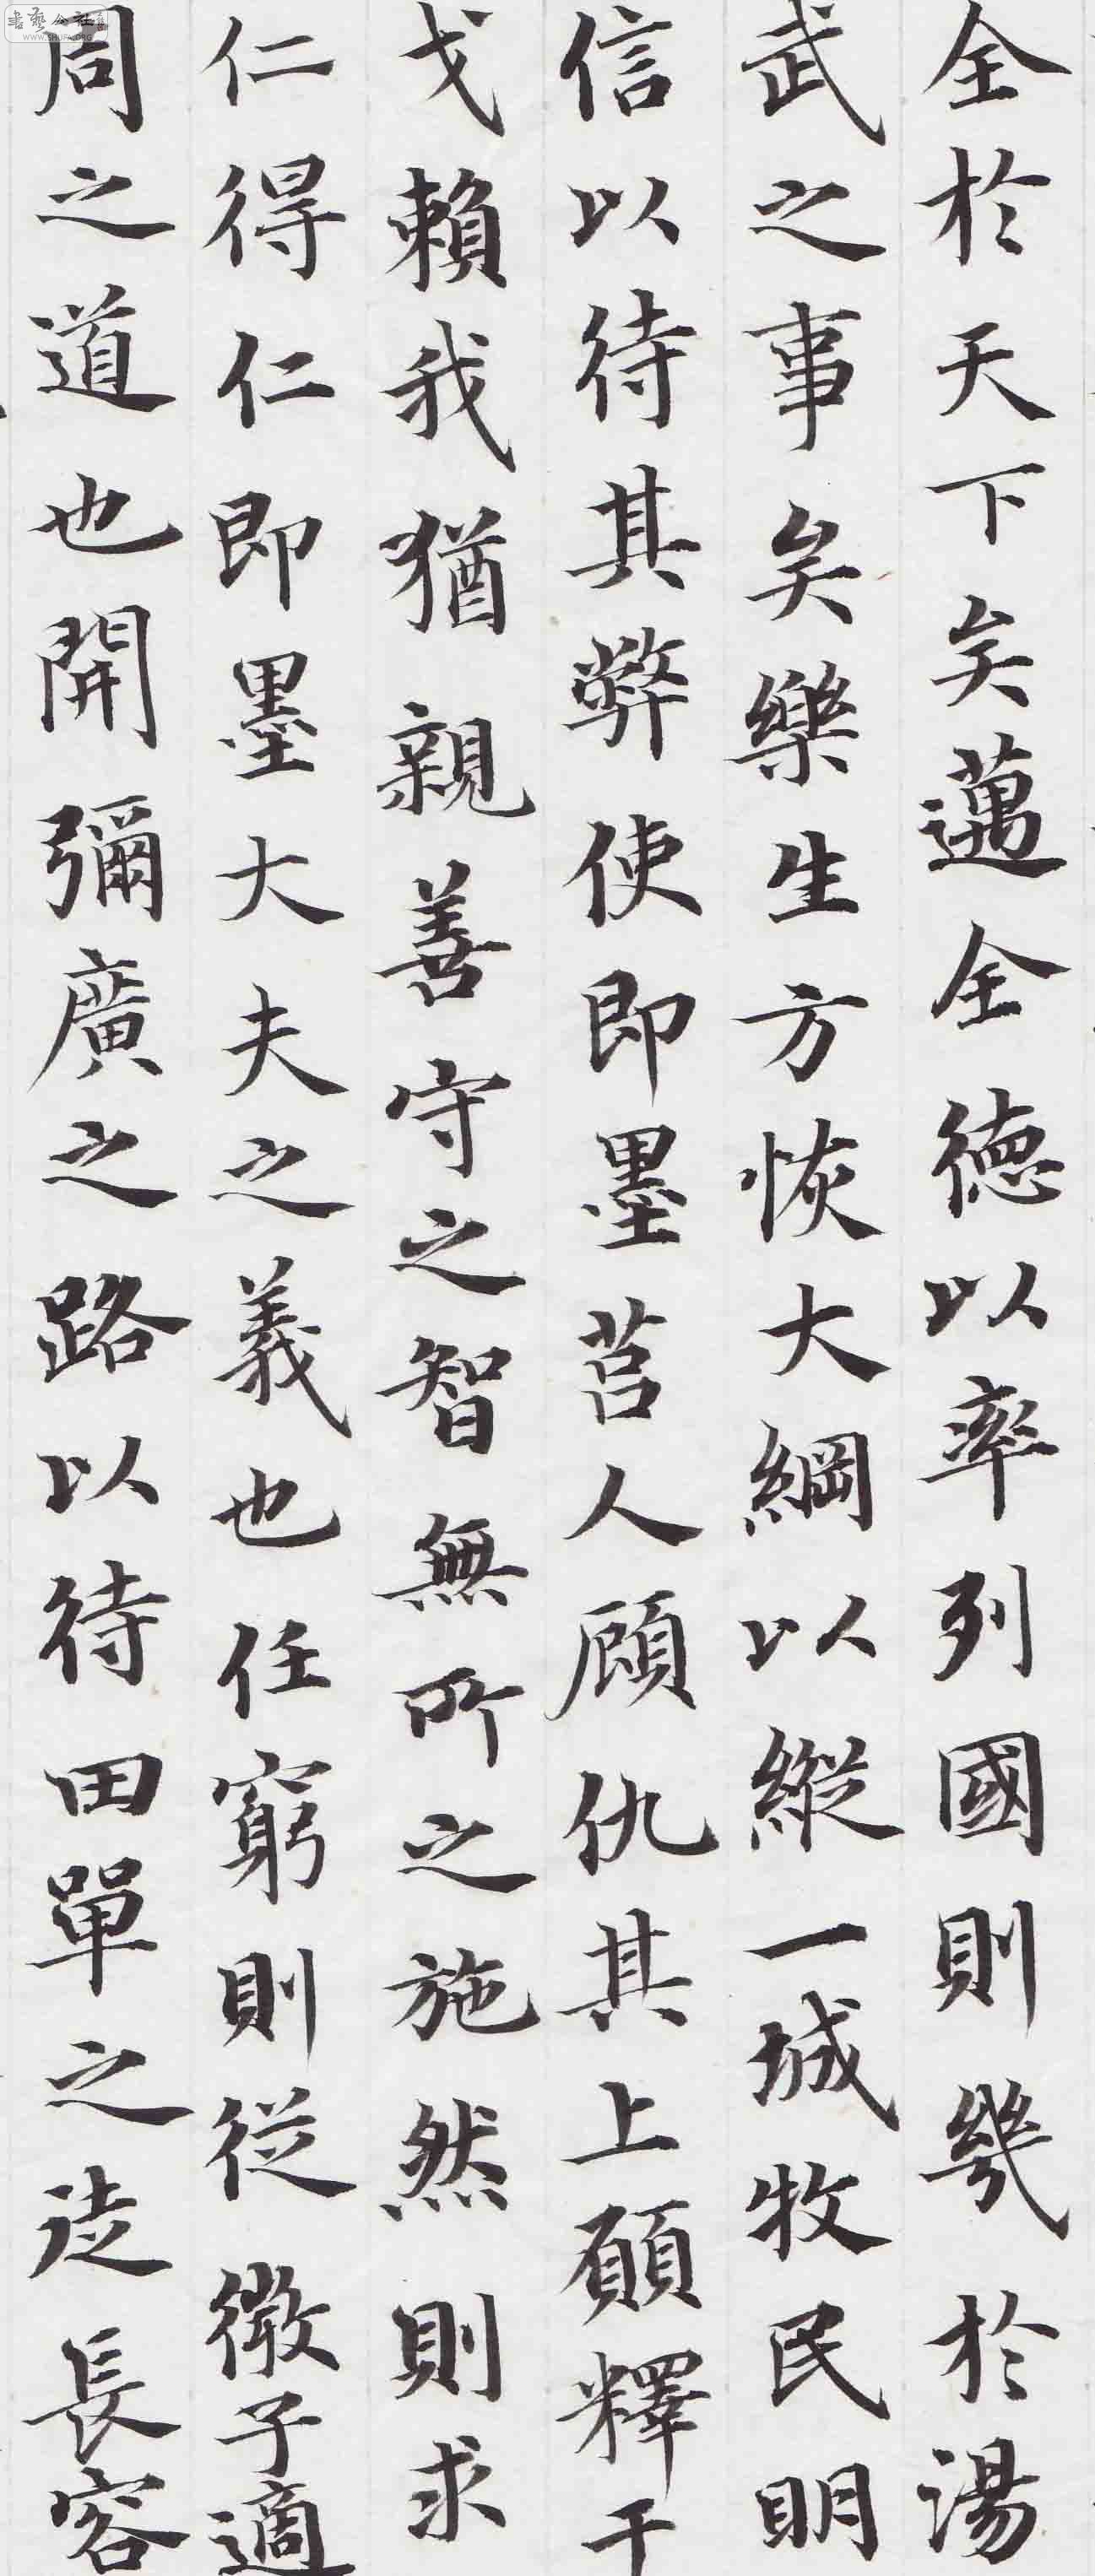 全於天下矣邁全德以率列國則幾於湯
武之事矣樂生方恢大綱以縱一城牧民明
信以待其弊使即墨莒人顧仇其上願釋干
戈賴我猶親善守之智無所之施然則求
仁得仁即墨大夫之義也任窮則從微子適
周之道也開彌廣之路以待田單之徒長容
書藝公社
WWW.SHUFA.ORG